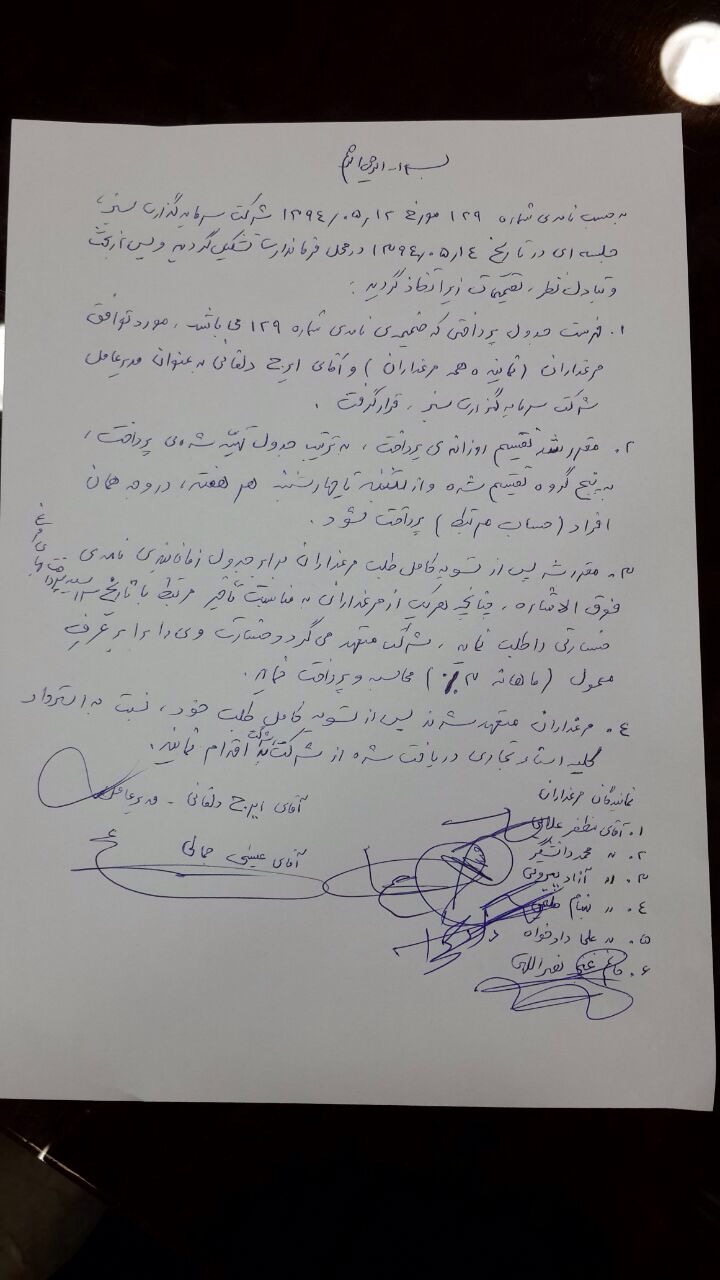 بسمه الرحمن الرحیم
به حسب نامه‌ی شماره ۱۲۹ مورخ ۱۳۹۴/۰۵/۱۲ شرکت سرمایه گذاری سبز،
جلسه ای در تاریخ ۱۳۹۴/۰۵/۱۴ در محل فرمانداری تشکیل گردید و پس از بحث
و تبادل نظر، تصمیمات زیر اتخاذ گردید:
۱. فهرست جدول پرداختی که ضمیمه‌ی نامه‌ی شماره ۱۲۹ می باشد، مورد توافق
مرغداران (نماینده همه مرغداران) و آقای ایرج دلفانی به عنوان مدیرعامل
شرکت سرمایه گذاری سبز، قرار گرفت.
۲. مقرر شد تقسیم روزانه‌ی پرداخت، به ترتیب جدول تهیّه شده‌ی پرداخت،
به پنج گروه تقسیم شده و از شنبه تا چهارشنبه هر هفته، در وجه همان
افراد (حساب مرتبط) پرداخت شود.
۳. مقرر شد پس از تسویه کامل طلب مرغداران برابر جدول زمانبندی نامه‌ی
فوق الاشاره، چنانچه هریک از مرغداران به مناسبت تأخیر مرتبط با تاریخ
خسارتی را طلب نماید، شرکت متعهد می گردد خسارت وی را برابر عرف
معمول (ماهانه ۳٪) محاسبه و پرداخت نماید.
۴. مرغداران متعهد شدند پس از تسویه کامل طلب خود، نسبت به استرداد
کلیه اسناد تجاری دریافت شده از شرکت به شرکت اقدام نمایند.
نمایندگان مرغداران
آقای ایرج دلفانی - مدیرعامل
۱. آقای مظفر علائی
آقای عیسی جمالی
۲. " محمد دانشگر
۳. " آزاد
۴. "
۵. " علی دادخواه
۶. نصراللهی